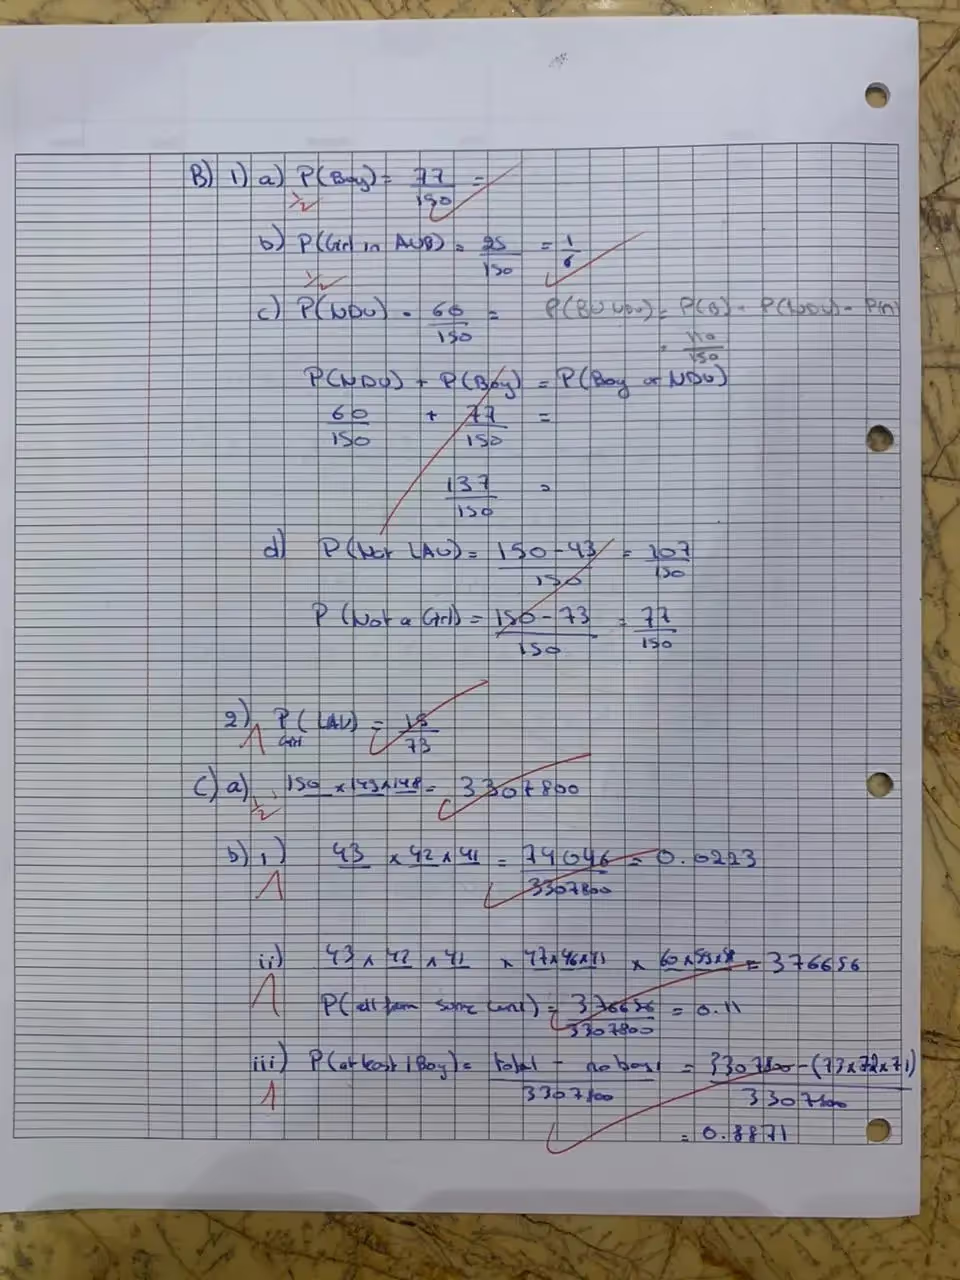 B) 1) a) P(Boy) = 77/150 =
1/2
b) P(Girl in AUB) = 25/150 = 1/6
1/2
c) P(NDU) = 60/150 = P(BUNDU) = P(B) - P(NDU) - P(n)
= 110/150
P(NDU) + P(Boy) = P(Boy or NDU)
60/150 + 77/150 =
137/150 =
d) P(Not LAU) = 150-43/150 = 107/150
P(Not a Girl) = 150-73/150 = 77/150
2) P(LAU) = 15/73
Girl
1
C) a) 150 x 149 x 148 = 3307800
1/2
b) i) 43 x 42 x 41 = 74046/3307800 = 0.0223
1
ii) 43 x 42 x 41 x 47 x 46 x 45 x 60 x 59 x 58 = 376656
1
P(all from same uni) = 376656/3307800 = 0.11
iii) P(at least 1 Boy) = total - no boys/3307800 = 3307800-(73x72x71)/3307800
1
= 0.8871